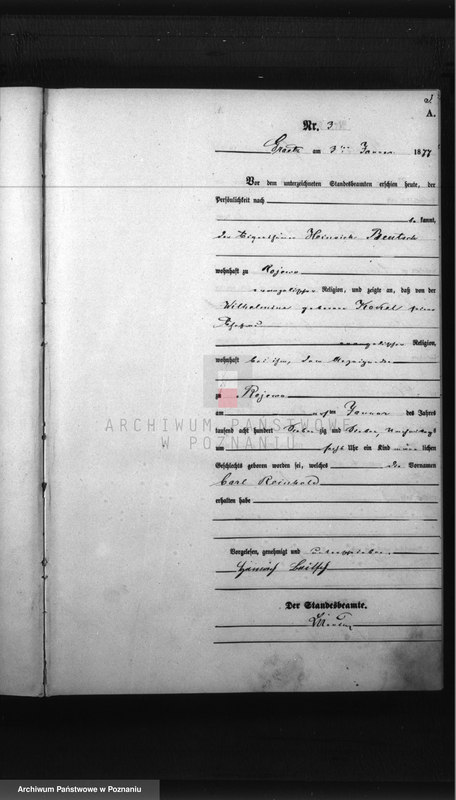 A.
Nr. 3
am 3ten Januar 1877
Vor dem unterzeichneten Standesbeamten erschien heute, der
Persönlichkeit nach
be kannt,
der Eigenthümer Heinrich Bentsch
wohnhaft zu Rojewo
evangelischer Religion, und zeigte an, daß von der
Wilhelmine geborene Kockel seine
Ehefrau
evangelischer Religion,
wohnhaft bei ihm, dem Anzeigenden
zu Rojewo
am ersten Januar des Jahres
tausend acht hundert sieben zig und sieben, Nachmittags
um sechs Uhr ein Kind männ lichen
Geschlechts geboren worden sei, welches die Vornamen
Carl Reinhold
erhalten habe
Vorgelesen, genehmigt und unterschrieben.
Heinrich
Der Standesbeamte.
ARCHIWUM PAŃSTWOWE
W POZNANIU
Archiwum Państwowe w Poznaniu